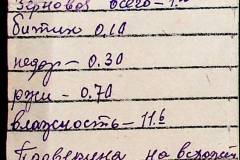 зерновой всего – 1.
битых 0.10
недозр – 0.30
ржи – 0.70
влажность – 11.6
Проверена на всхожест